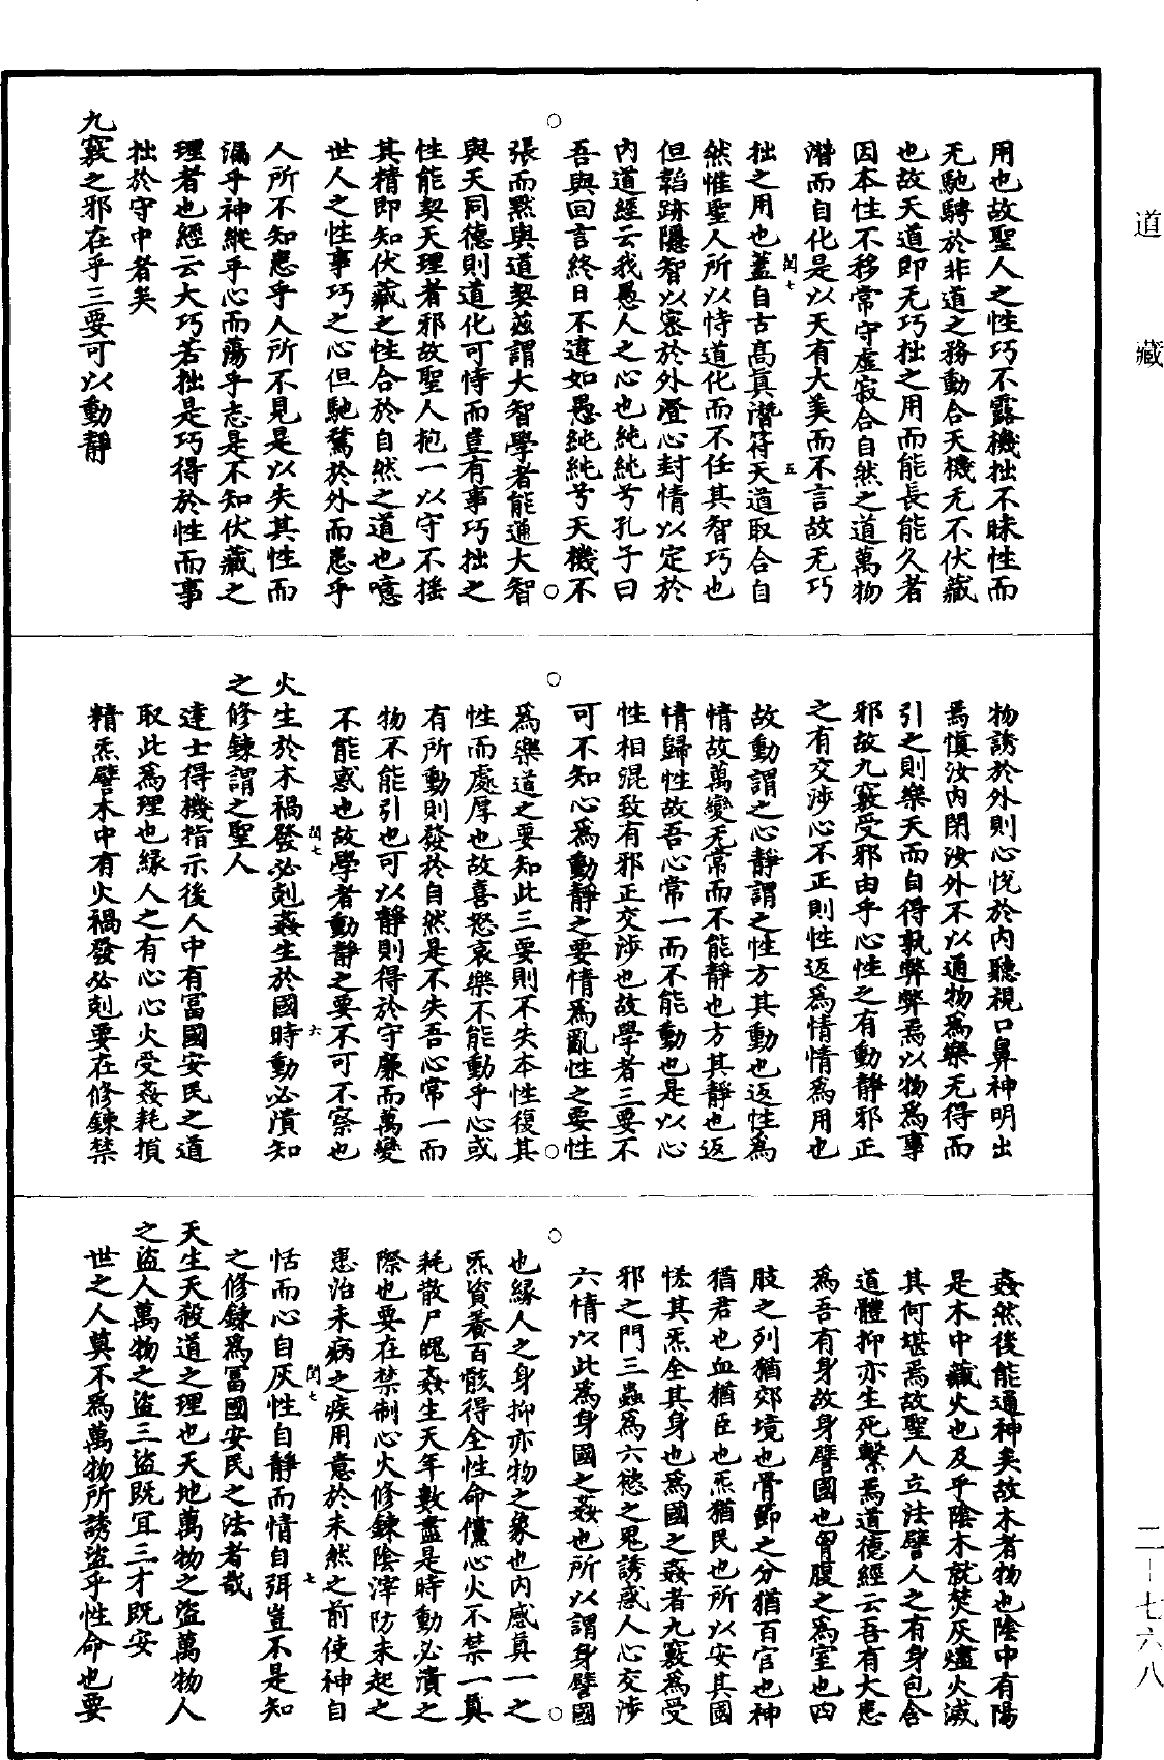 道藏
用也故聖人之性巧不露機拙不昧性而
无馳騁於非道之務動合天機无不伏藏
也故天道即无巧拙之用而能長能久者
因本性不移常守虛寂合自然之道萬物
潛而自化是以天有大美而不言故无巧
閏七
五
拙之用也蓋自古高真潛符天道取合自
然惟聖人所以恃道化而不任其智巧也
但韜跡隱智以密於外澄心封情以定於
內道經云我愚人之心也純純兮孔子曰
吾與回言終日不違如愚純純兮天機不
張而默與道契茲謂大智學者能通大智
與天同德則道化可恃而豈有事巧拙之
性能契天理者邪故聖人抱一以守不搖
其精即知伏藏之性合於自然之道也噫
世人之性事巧之心但馳騖於外而患乎
人所不知患乎人所不見是以失其性而
漏乎神縱乎心而蕩乎志是不知伏藏之
理者也經云大巧若拙是巧得於性而事
拙於守中者矣
九竅之邪在乎三要可以動靜
物誘於外則心悅於內聽視口鼻神明出
焉慎汝內閉汝外不以通物為樂无得而
引之則樂天而自得孰弊弊焉以物為事
邪故九竅受邪由乎心性之有動靜邪正
之有交涉心不正則性返為情情為用也
故動謂之心靜謂之性方其動也返性為
情故萬變无常而不能靜也方其靜也返
情歸性故吾心常一而不能動也是以心
性相混致有邪正交涉也故學者三要不
可不知心為動靜之要情為亂性之要性
為樂道之要知此三要則不失本性復其
性而處厚也故喜怒哀樂不能動乎心或
有所動則發於自然是不失吾心常一而
物不能引也可以靜則得於守廉而萬變
不能惑也故學者動靜之要不可不察也
閏七
六
火生於木禍發必剋姦生於國時動必潰知
之修鍊謂之聖人
達士得機指示後人中有富國安民之道
取此為理也緣人之有心心火受姦耗損
精炁譬木中有火禍發必剋要在修鍊禁
姦然後能通神矣故木者物也陰中有陽
是木中藏火也及乎陰木就焚灰燼火滅
其何堪焉故聖人立法譬人之有身包含
道體抑亦生死繫焉道德經云吾有大患
為吾有身故身譬國也胷腹之為室也四
肢之列猶郊境也骨節之分猶百官也神
猶君也血猶臣也炁猶民也所以安其國
恡其炁全其身也為國之姦者九竅為受
邪之門三蟲為六慾之鬼誘惑人心交涉
六情以此為身國之姦也所以謂身譬國
也緣人之身抑亦物之象也內感真一之
炁資養百骸得全性命儻心火不禁一真
耗散尸魄姦生天年數盡是時動必潰之
際也要在禁制心火修鍊陰滓防未起之
患治未病之疾用意於未然之前使神自
閏七
七
恬而心自灰性自靜而情自弭豈不是知
之修鍊為富國安民之法者哉
天生天殺道之理也天地萬物之盜萬物人
之盜人萬物之盜三盜既宜三才既安
世之人莫不為萬物所誘盜乎性命也要
二—七六八